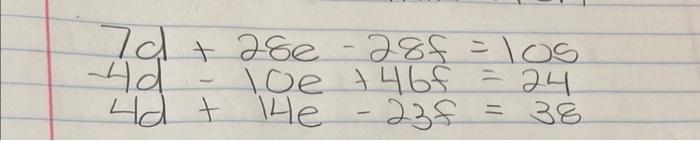 7d + 28e - 28f = 105
-4d - 10e + 46f = 24
4d + 14e - 23f = 38